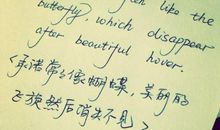 often like the
butterfly, which disappear
after beautiful hover.
<承诺常常像蝴蝶，美丽的
飞旋然后消失不见>